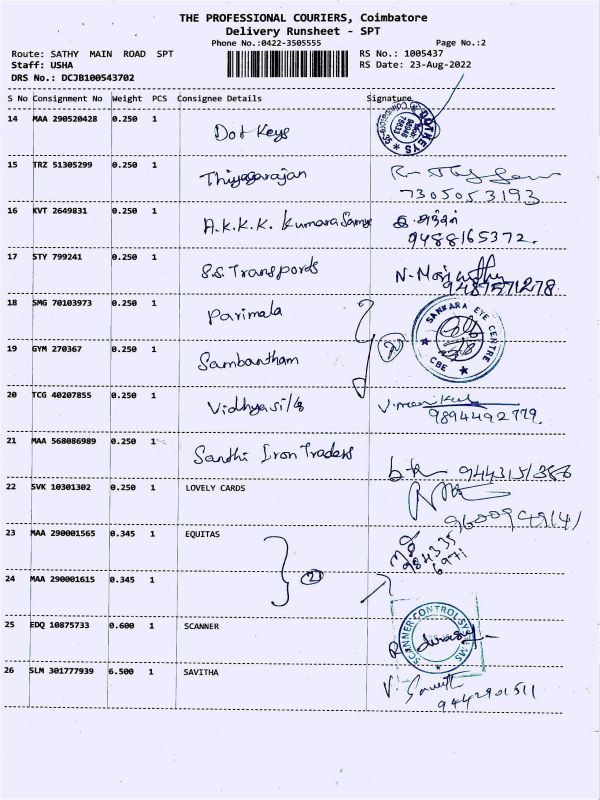 THE PROFESSIONAL COURIERS, Coimbatore
Delivery Runsheet - SPT
Phone No.:0422-3505555
Page No.:2
Route: SATHY MAIN ROAD SPT
RS No.: 1005437
Staff: USHA
RS Date: 23-Aug-2022
DRS No.: DCJB100543702
S No Consignment No Weight PCS Consignee Details Signature
14 MAA 290520428 0.250 1 Dot Keys DOTKEYS
15 TRZ 51305299 0.250 1 Thiyagarajan
7305053193
16 KVT 2649831 0.250 1 A.K.K.K. Kumara Samy
9488165372.
17 STY 799241 0.250 1 S.S Transpords
9487571278
18 SMG 70103973 0.250 1 Parimala SANKARA EYE CENTRE
CBE
19 GYM 270367 0.250 1 Sambantham
20 TCG 40207855 0.250 1 Vidhya
9894492779.
21 MAA 568086989 0.250 1 Santhi Iron Traders
22 SVK 10301302 0.250 1 LOVELY CARDS
23 MAA 290001565 0.345 1 EQUITAS
984335
6971
24 MAA 290001615 0.345 1
25 EDQ 10875733 0.600 1 SCANNER SCANNER CONTROL SYSTEMS
26 SLM 301777939 6.500 1 SAVITHA
9442901511